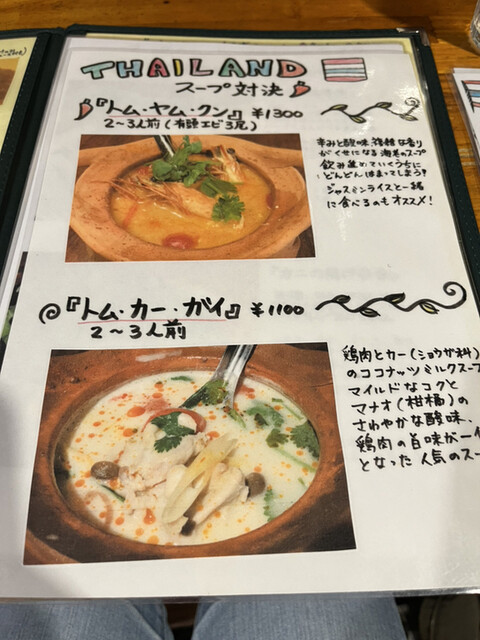 THAILAND
スープ対決
『トム・ヤム・クン』 ¥1300
2~3人前(有頭エビ3尾)
辛みと酸味、複雑な香り
がくせになる海老のスープ
飲み進めていくうちに
どんどんはまってしまう?
ジャスミンライスと一緒
に食べるのもオススメ!
『トム・カー・ガイ』 ¥1100
2~3人前
鶏肉とカー(ショウガ科)
のココナッツミルクスープ
マイルドなコクと
マナオ(柑橘)の
さわやかな酸味、
鶏肉の旨味が一体
となった人気のスー